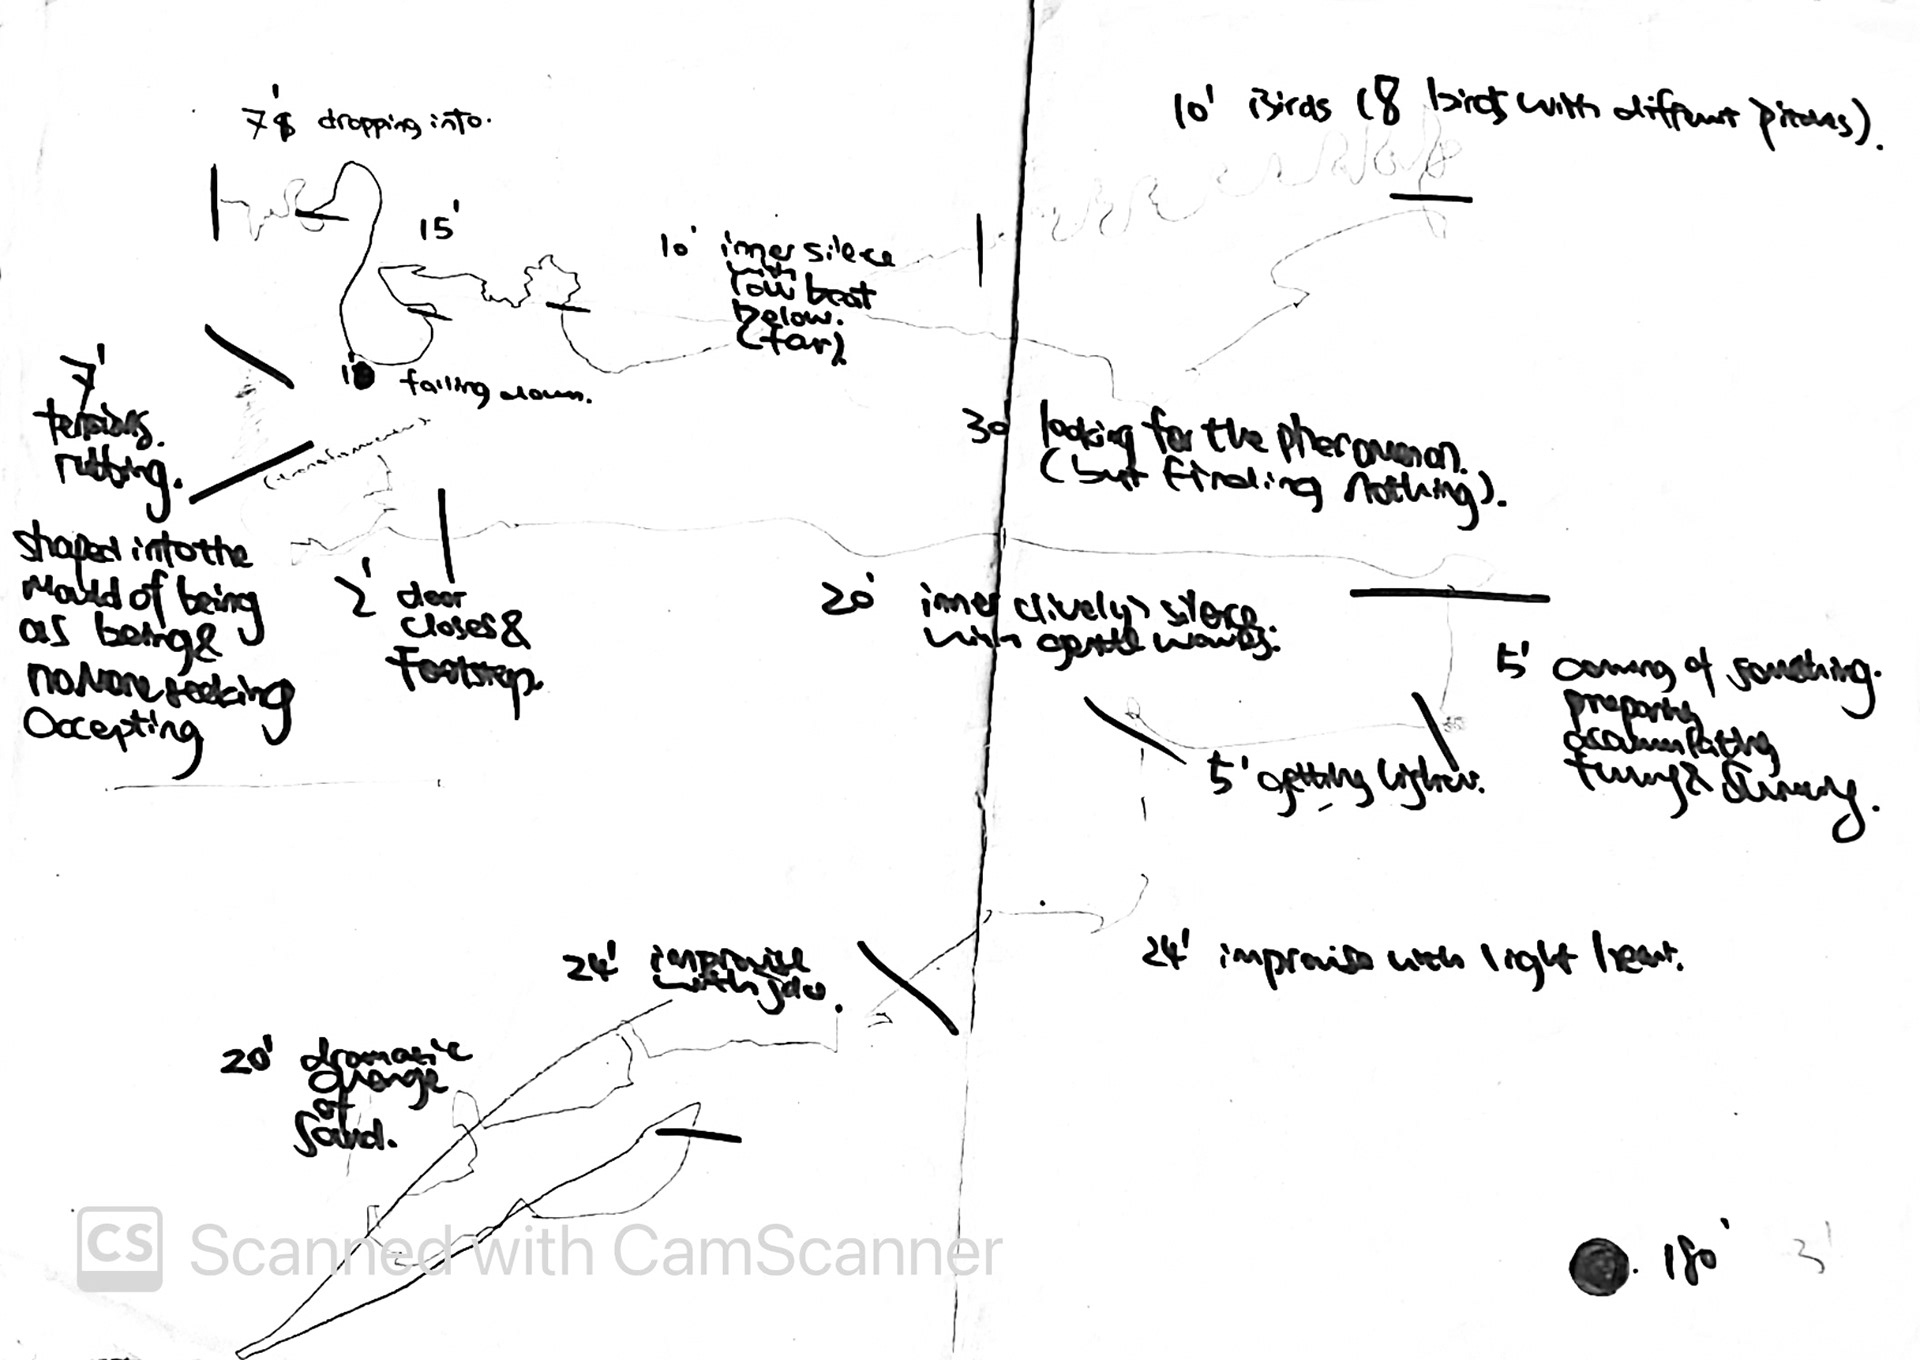 7' dropping into.
10' Birds (8 birds with different pitches).
15'
10' inner silece
with
low beat
below.
(far).
1' falling down.
7'
tensions.
rubbing.
(transformation)
30 looking for the phenomenon.
(but finding nothing).
shaped into the
mould of being
as being &
no more seeking
accepting
2' door
closes &
footstep.
20' inner (lively) silence.
with gentle waves.
5' coming of something.
preparing
accumulating
5' getting lighter.
24' improvise
with
24' improvise with light heart.
20' dramatic
change
of
sound.
CS Scanned with CamScanner
180' 3'